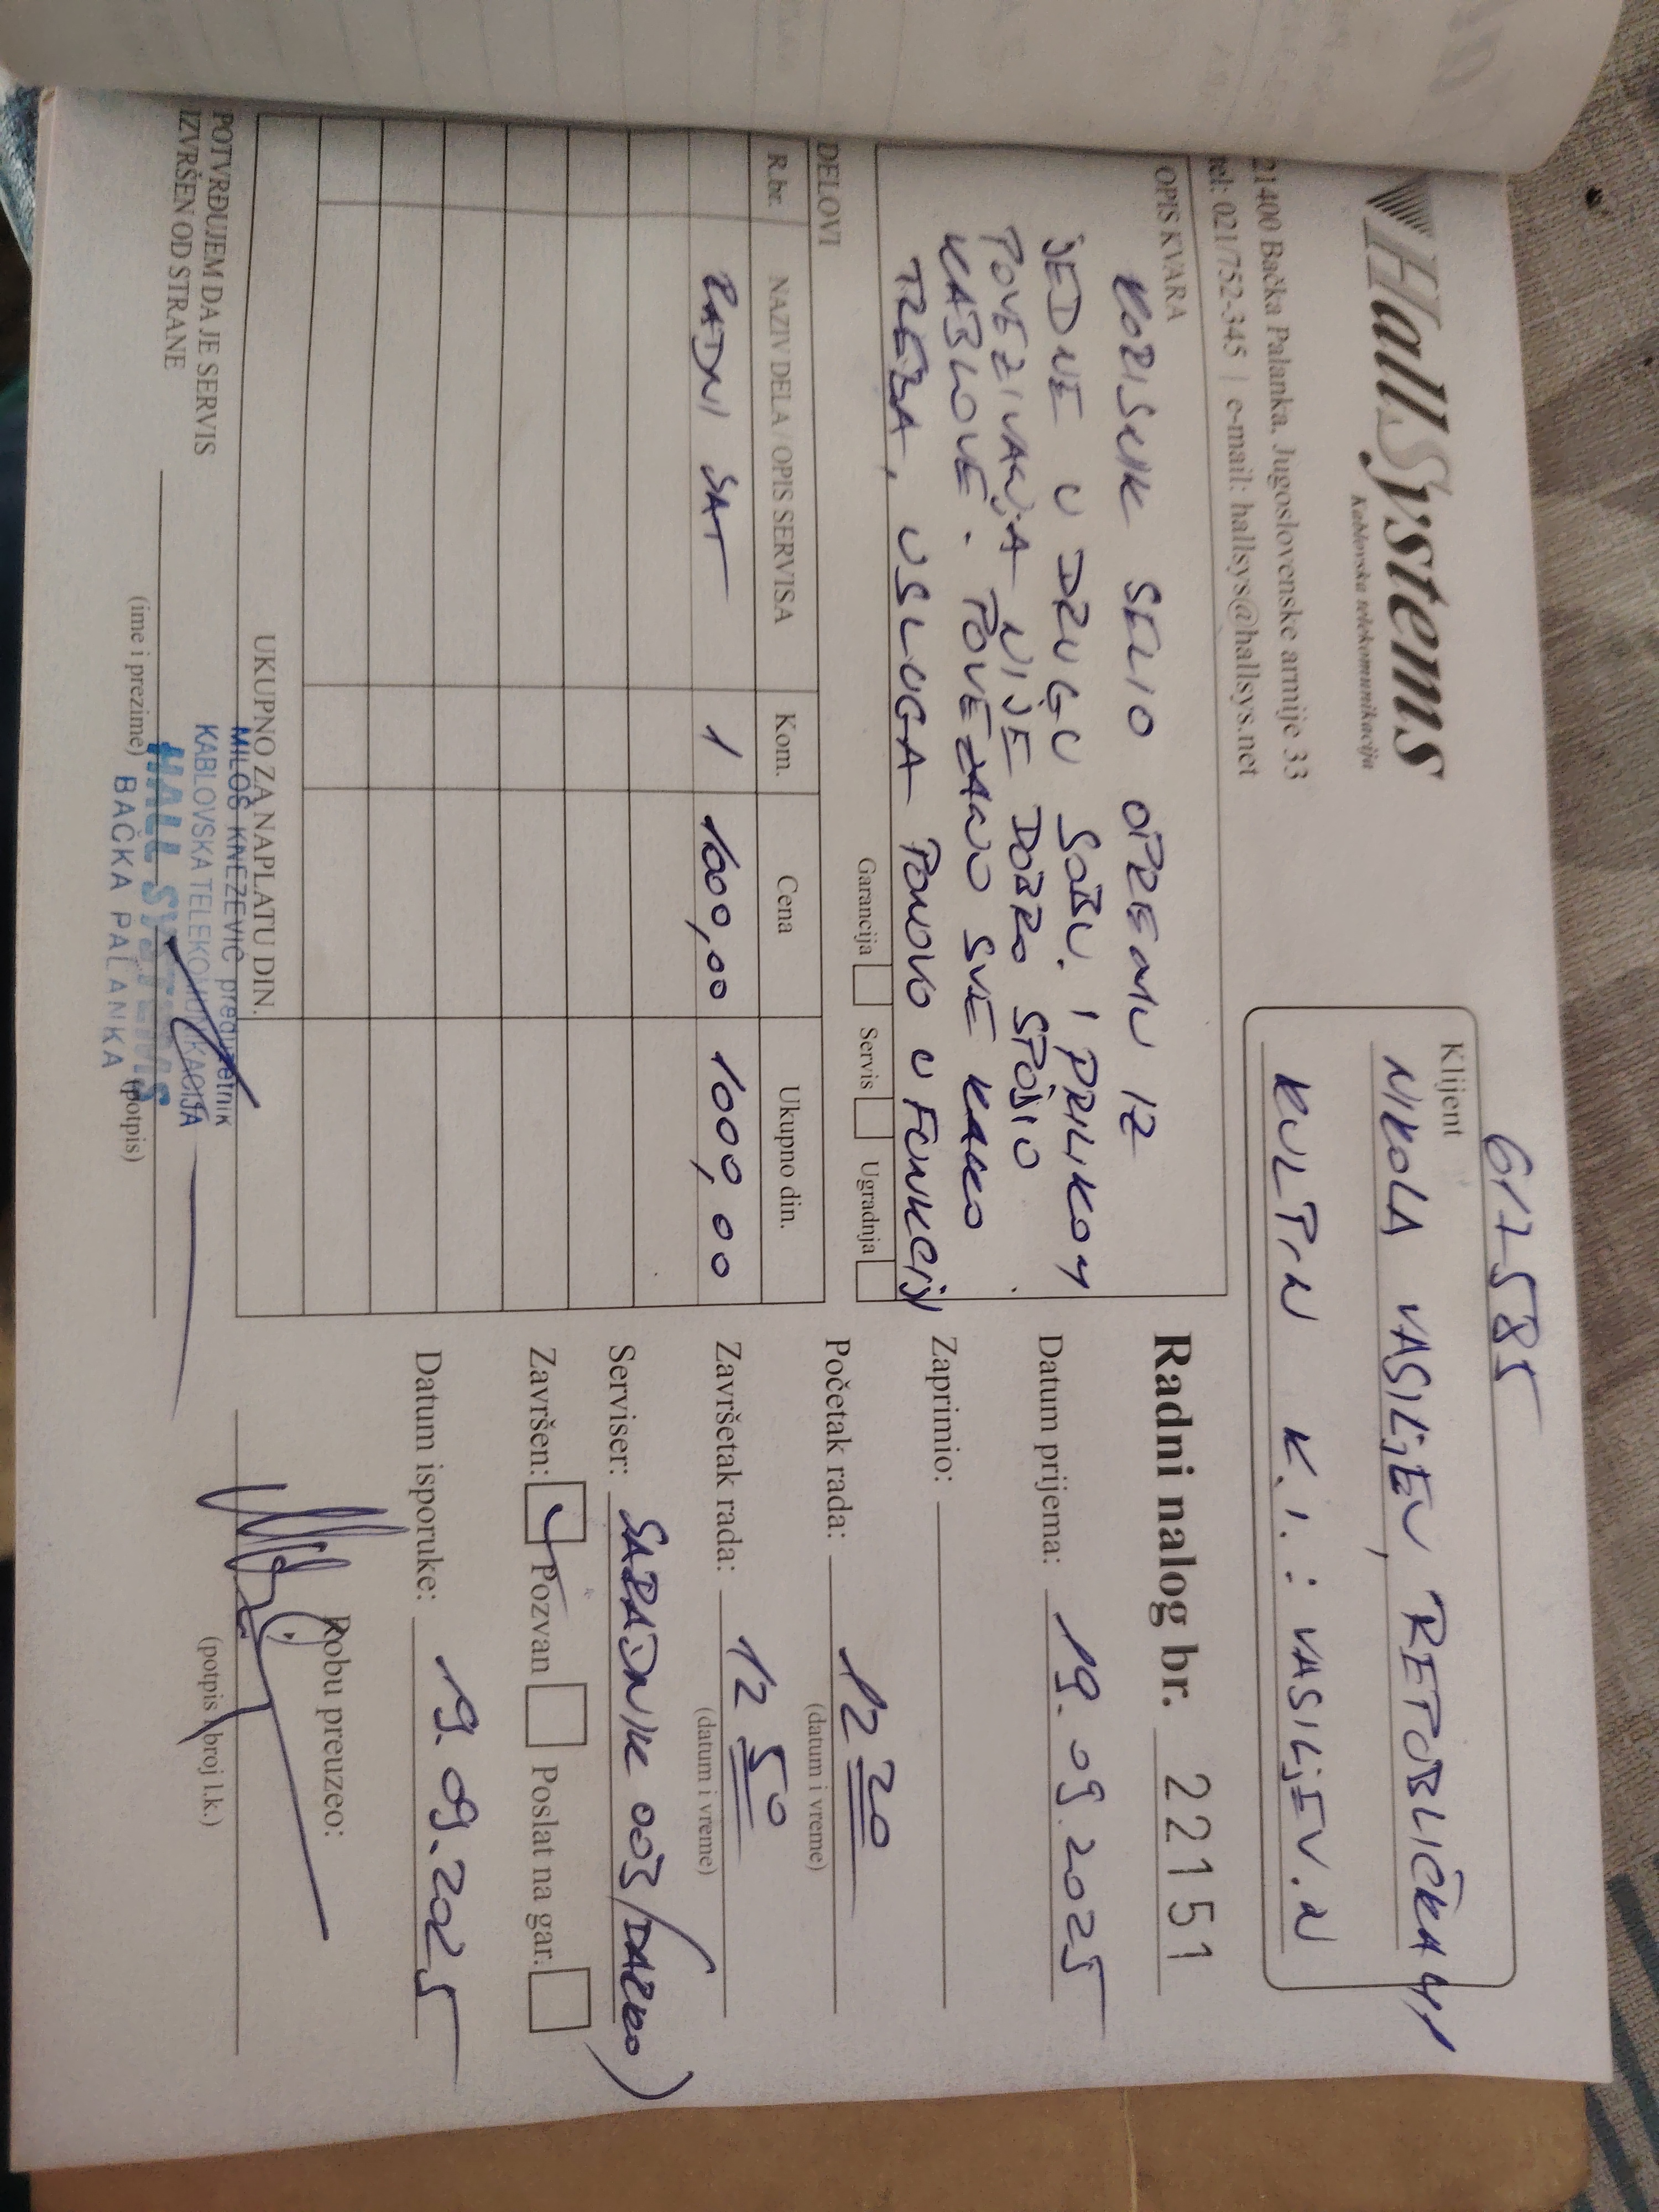 HallSystems
Kablovska telekomunikacija
21400 Bačka Palanka, Jugoslovenske armije 33
tel: 021/752-345 | e-mail: hallsys@hallsys.net
617-585
Klijent
NIKOLA VASILjEV, REPUBLIČKA 41
KULPIN K.I.: VASILjEV.N
OPIS KVARA
KORISNIK SELIO OPREMU IZ
JEDNE U DRUGU SOBU. I PRILIKOM
POVEZIVANjA NIJE DOBRO SPOJIO
KABLOVE. POVEZANO SVE KAKO
TREBA, USLUGA PONOVO U FUNKCIJI
Garancija Servis Ugradnja
Radni nalog br. 22151
Datum prijema: 19.09.2025
Zaprimio:
Početak rada: 12 20
(datum i vreme)
Završetak rada: 12 50
(datum i vreme)
Serviser: SARADNIK 003/DARKO)
Završen: Pozvan Poslat na gar.
Datum isporuke: 19.09.2025
DELOVI
R.br. NAZIV DELA / OPIS SERVISA Kom. Cena Ukupno din.
RADNI SAT 1 1000,00 1000,00
UKUPNO ZA NAPLATU DIN.
POTVRĐUJEM DA JE SERVIS
IZVRŠEN OD STRANE
(ime i prezime) (potpis)
MILOŠ KNEŽEVIĆ preduzetnik
KABLOVSKA TELEKOMUNIKACIJA
HALL SYSTEMS
BAČKA PALANKA
Robu preuzeo:
(potpis / broj l.k.)